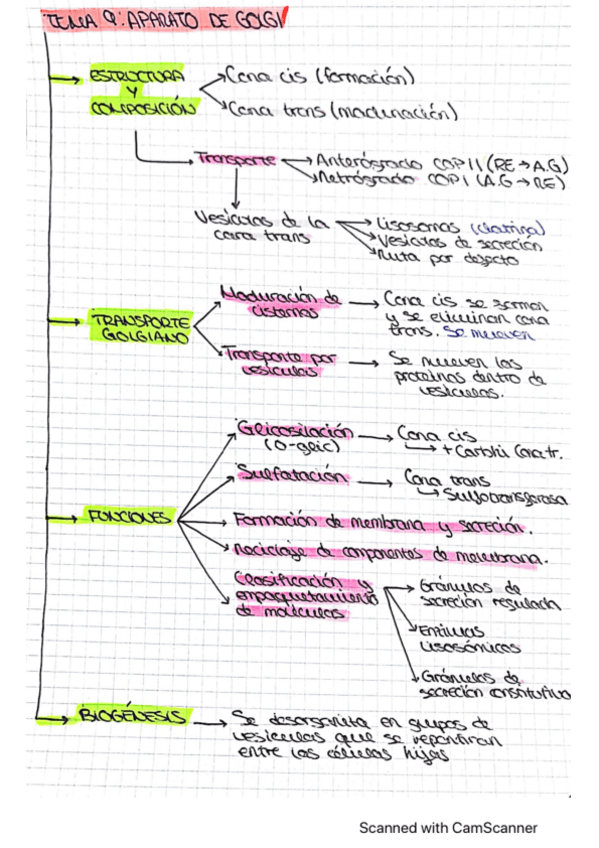 TEMA 9: APARATO DE GOLGI
ESTRUCTURA
Y
COMPOSICIÓN
Cara cis (formación)
Cara trans (maduración)
Transporte
Anterógrado COPII (RE → A.G)
Retrógrado COPI (A.G → RE)
Vesículas de la
cara trans
Lisosomas (clatrina)
Vesículas de secreción
Ruta por defecto
TRANSPORTE
GOLGIANO
Maduración de
cisternas
Cara cis se forman
y se eliminan cara
trans. Se mueven
Transporte por
vesículas
Se mueven las
proteínas dentro de
vesículas.
FUNCIONES
Glicosilación
(O-glic)
Cara cis
+ Carbhi Cara tr.
Sulfatación
Cara trans
Sulfotransferasa
Formación de membrana y secreción.
Reciclaje de componentes de membrana.
Clasificación y
empaquetamiento
de moléculas
Gránulos de
secreción regulada
Enzimas
Lisosómicas
Gránulos de
secreción constitutiva
BIOGÉNESIS
Se desorganiza en grupos de
vesículas que se repartirán
entre las células hijas
Scanned with CamScanner